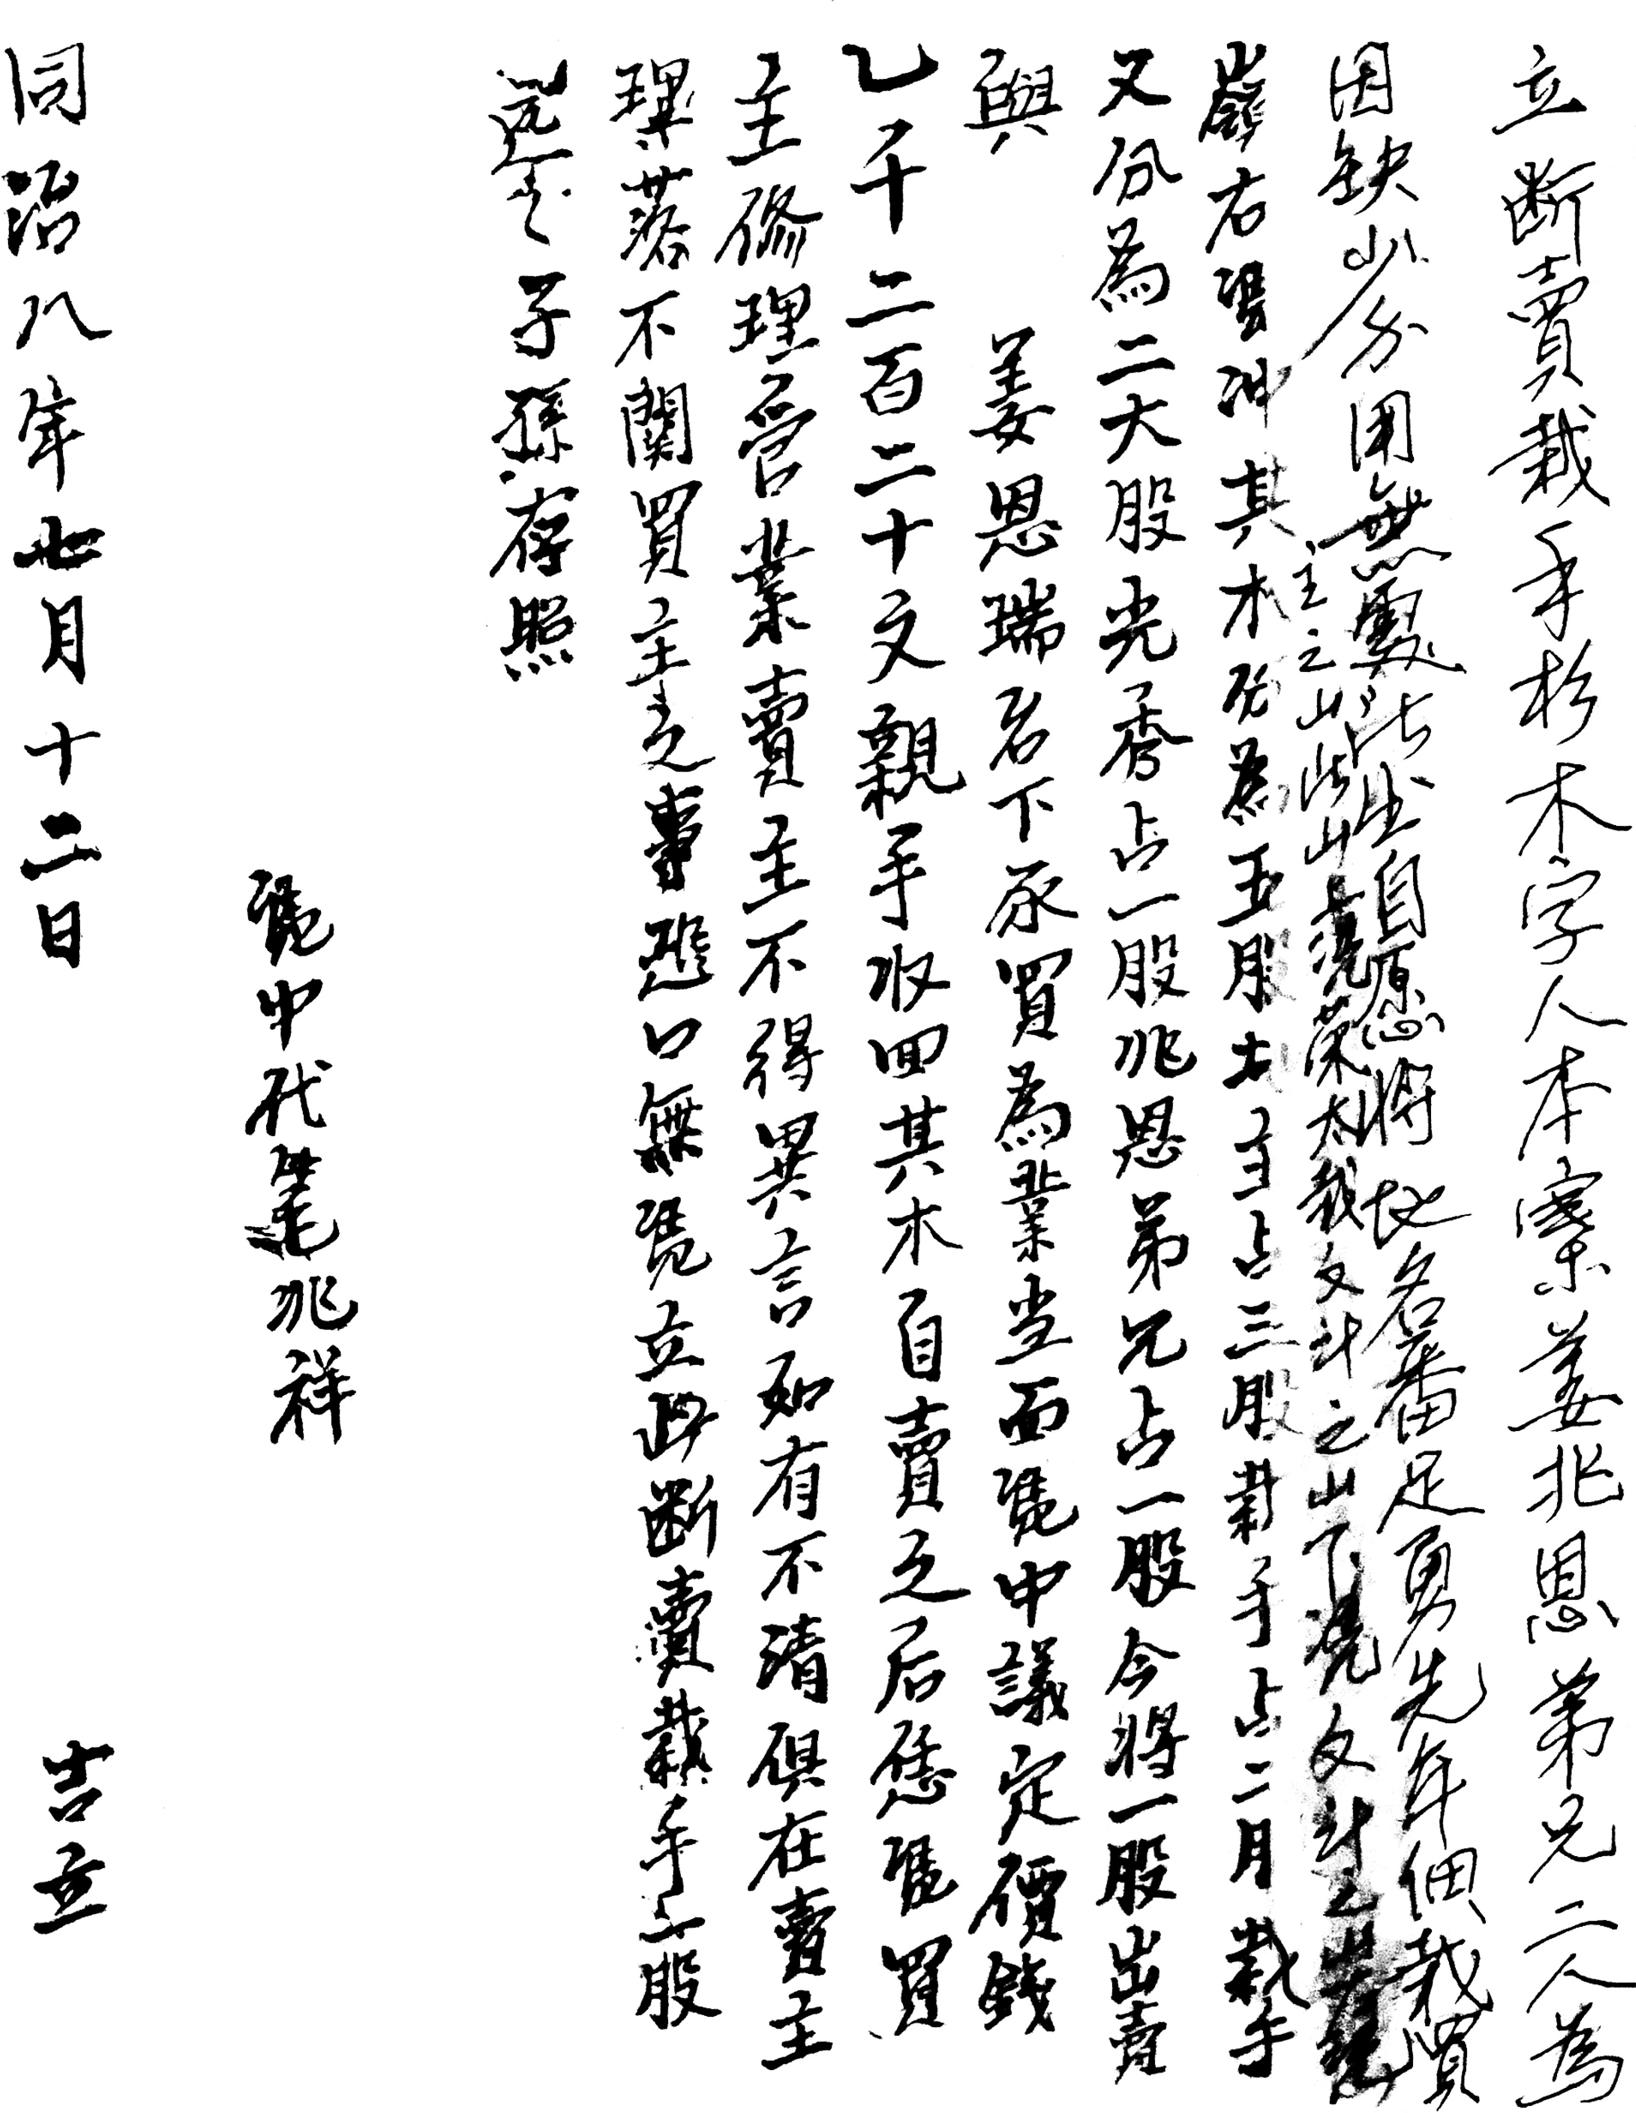 立断賣栽手杉木字人本寨姜兆恩弟兄二人為
因缺少分用無處出自愿將地名番足勇先年佃栽買
主之山此山上凴荣太栽文斗之山下凴文斗之山左凴
嶺右凴冲其木分為五股土主占三股栽手占二月栽手
又分為二大股光秀占一股兆恩弟兄占一股今將一股出賣
與 姜恩瑞名下承買為業當面凴中議定價錢
乙千二百二十文親手收回其木自賣之后恁凴買
主修理管業賣主不得異言如有不清俱在賣主
理落不關買主之事恐口無凴立此断賣栽手一股
遠子孫存照
凴中代筆兆祥
同治八年七月十二日 吉立